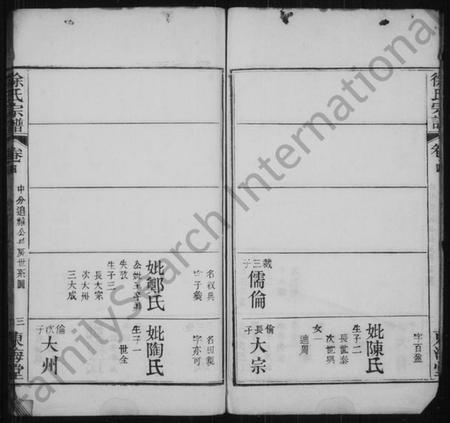 徐氏宗譜
卷
東海堂
載三子
儒倫
字百盈
妣陳氏
生子二
長世泰
次世興
女一
適周
倫長子
大宗
名叔典
字子羲
妣鄭氏
失攷
生子三
長大宗
次大州
三大成
字亦可
妣陶氏
生子一
世全
倫次子
大州
徐氏宗譜
卷
世系圖
三
東海堂
FamilySearch International